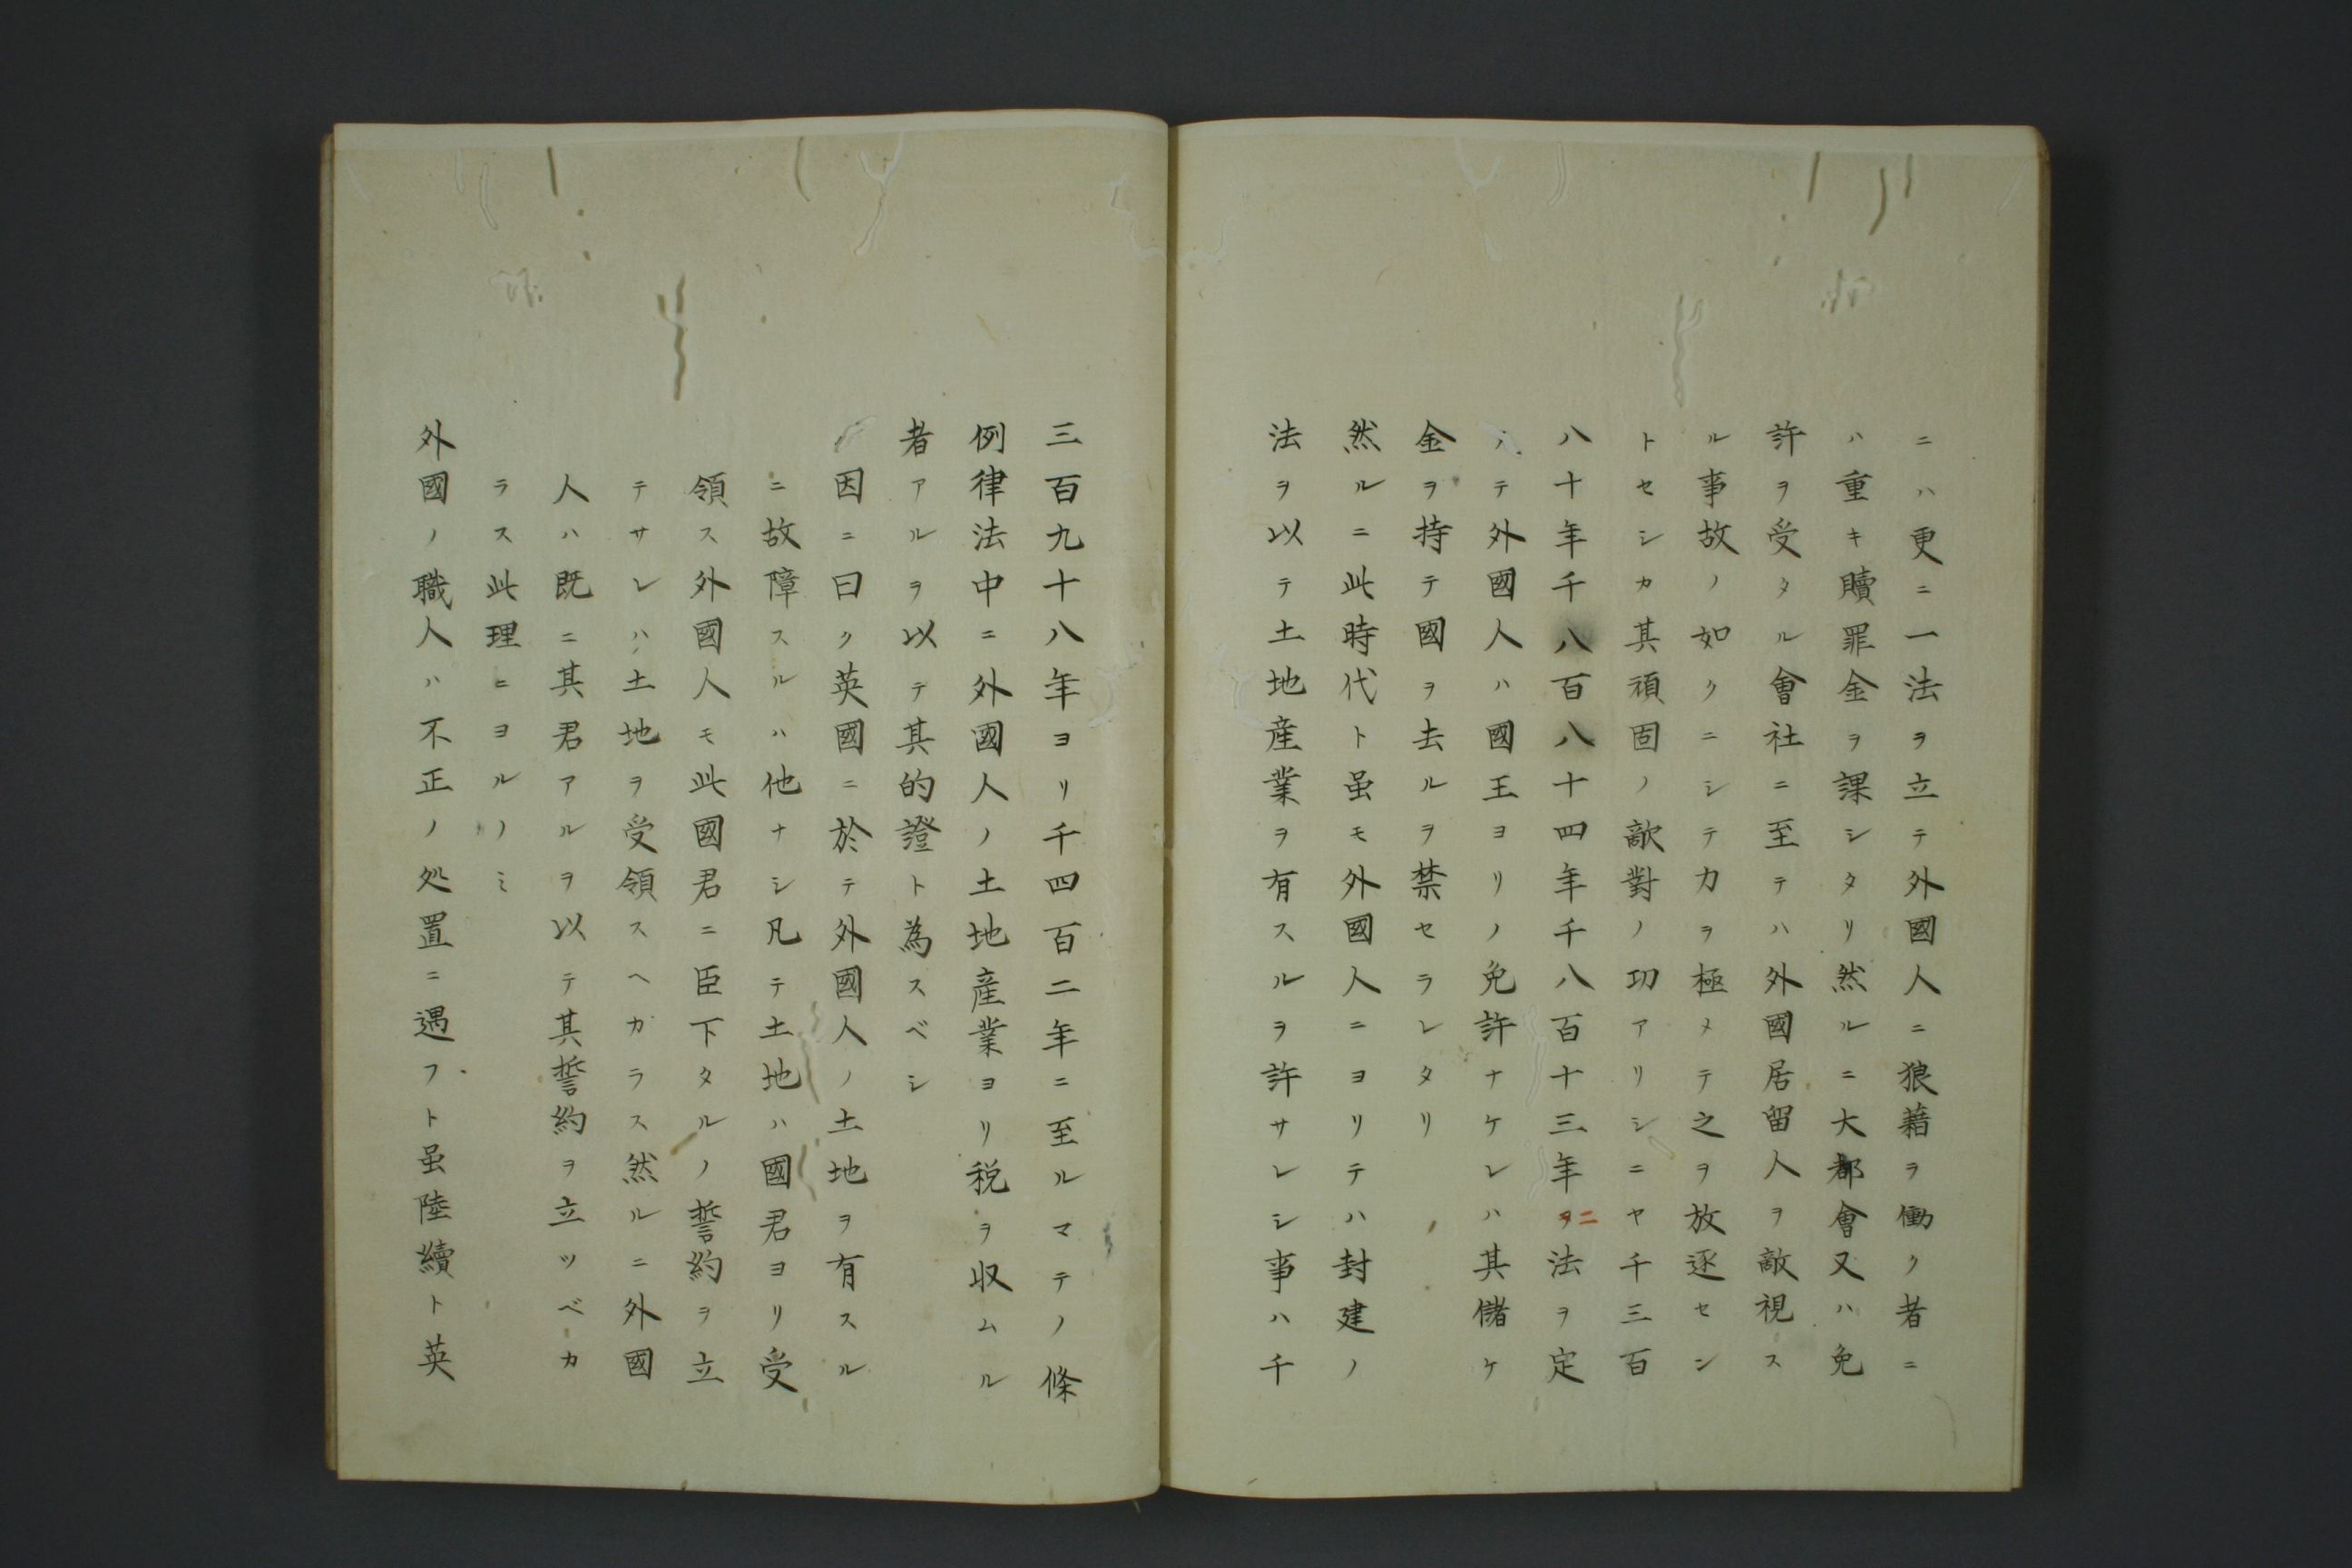 ニハ更ニ一法ヲ立テ外國人ニ狼藉ヲ働ク者ニ
ハ重キ贖罪金ヲ課シタリ然ルニ大都會又ハ免
許ヲ受タル會社ニ至テハ外國居留人ヲ敵視ス
ル事故ノ如クニシテカヲ極メテ之ヲ放逐セン
トセシカ其頑固ノ敵對ノ功アリシニヤ千三百
八十年千八百八十四年千八百十三年ヲニ法ヲ定
テ外國人ハ國王ヨリノ免許ナケレハ其儲ケ
金ヲ持テ國ヲ去ルヲ禁セラレタリ
然ルニ此時代ト虽モ外國人ニヨリテハ封建ノ
法ヲ以テ土地産業ヲ有スルヲ許サレシ事ハ千
三百九十八年ヨリ千四百二年ニ至ルマテノ條
例律法中ニ外國人ノ土地産業ヨリ税ヲ収ムル
者アルヲ以テ其的證ト為スベシ
因ニ曰ク英國ニ於テ外國人ノ土地ヲ有スル
ニ故障スルハ他ナシ凡テ土地ハ國君ヨリ受
領ス外國人モ此國君ニ臣下タルノ誓約ヲ立
テサレハ土地ヲ受領スヘカラス然ルニ外國
人ハ既ニ其君アルヲ以テ其誓約ヲ立ツベカ
ラス此理ニヨルノミ
外國ノ職人ハ不正ノ処置ニ遇フト虽陸續ト英